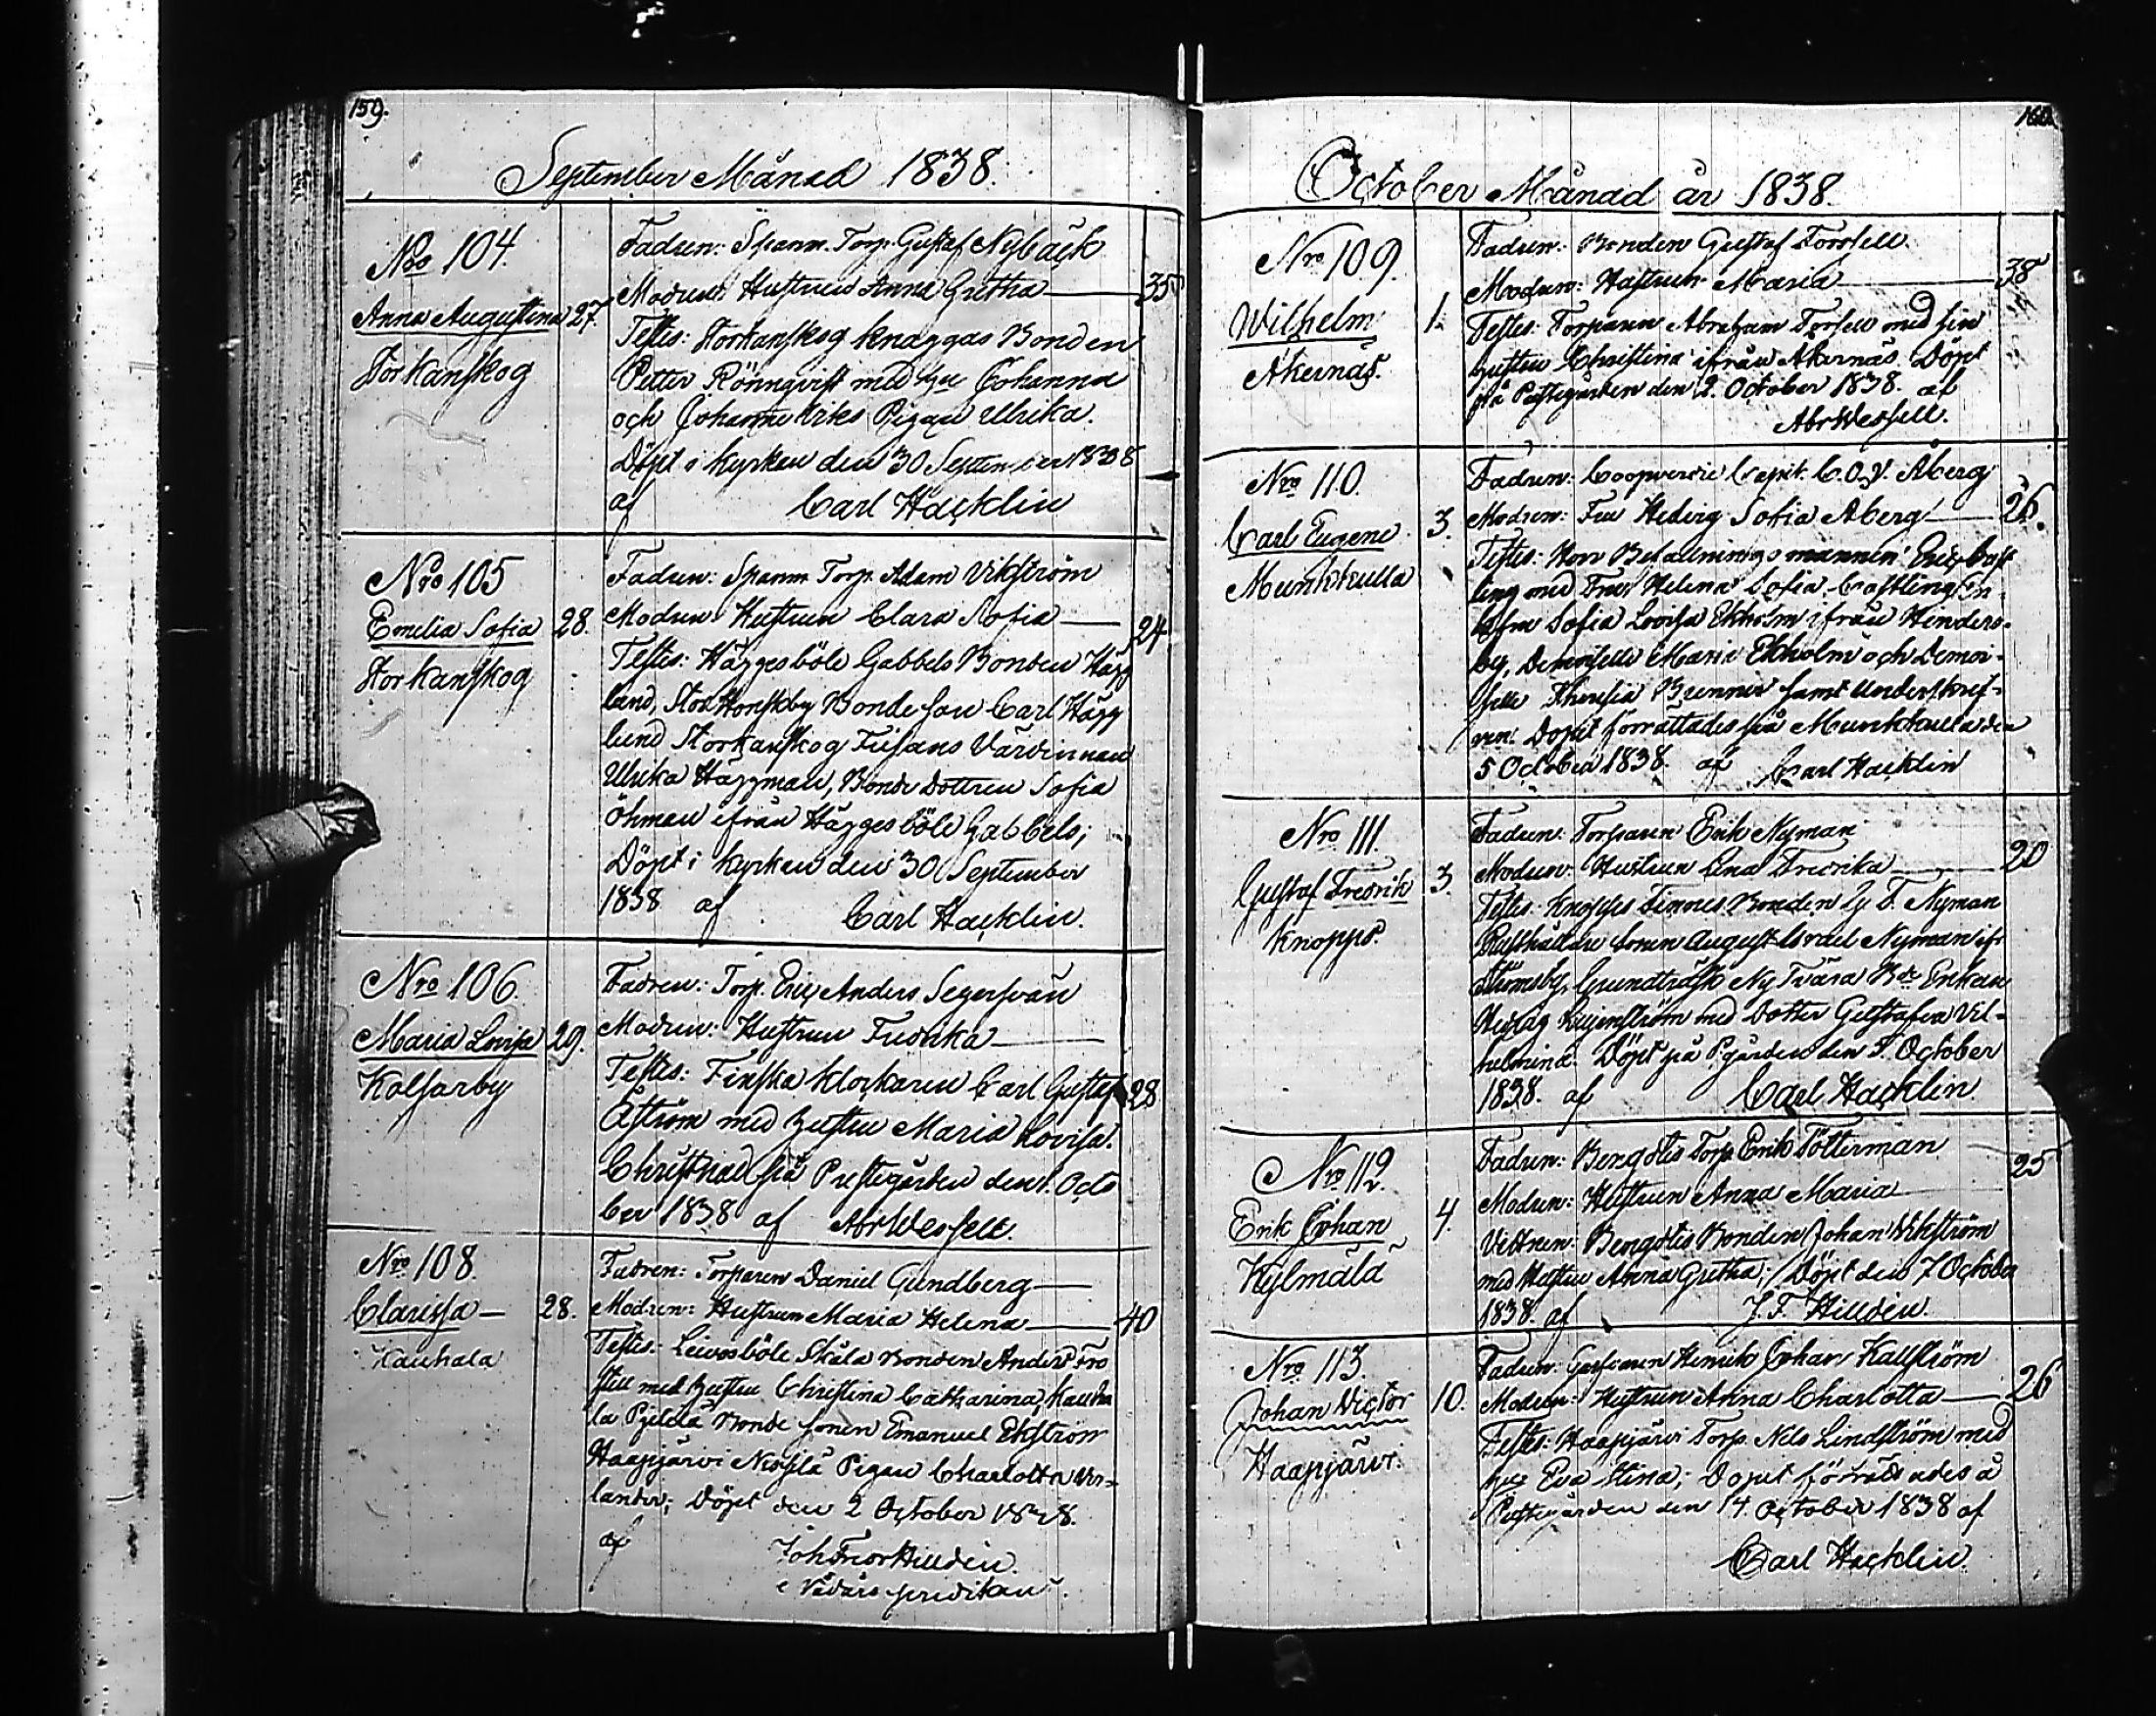 159.
September Månad 1838.
Nro 104.
Anna Augustina 27.
Storkanskog
Fadren: Spanm. Torp. Gustaf Nybäck
Modren: Hustrun Anna Gretha 35
Testes: Storkanskog Knaggas Bonden
Petter Rönnqvist med hu Johanna
och Johanne Eriks Pigan Ulrika.
Döpt i kyrkan den 30 September 1838
af Carl Hacklin
Nro 105
Emelia Sofia 28.
Storkanskog
Fadren: Spanm Torp. Adam Vikström
Modren: Hustrun Clara Sofia 24
Testes: Häggesböle Gabbels Bonden Hägg
lund, Stor Honskby Bonde son Carl Hägg
lund Storkanskog Värdinnan
Ulrika Häggman, Bonde Dottren Sofia
Öhman ifrån Häggesböle Gabbels;
Döpt i kyrkan den 30 September
1838 af Carl Hacklin.
Nro 106.
Maria Lovisa 29.
Kolsarby
Fadren: Torp. Eric Anders Segersvän
Modren: Hustrun Fredrika
Testes: Finska klockaren Carl Gustaf 28
Åström med hustru Maria Lovisa.
Christnad på Prestegården den 1. Octo
ber 1838 af Abr Wessell.
Nro 108.
Clarissa 28.
Kauhala
Fadren: Torparen Daniel Gundberg
Modren: Hustrun Maria Helena 40
Testes: Leivosböle Skåla Bonden Anders Fro
sten med hustru Christina Catharina, Kauha
la Pjelelä Bonde sonen Emanuel Ekström
Haapjärvi Pigan Charlotta Ver-
lander; Döpt den 2 October 1838.
af Joh Fredr Hilldén.
e Vådärs predikan.
160
October Månad år 1838.
Nro 109.
Wilhelm 1.
Åkernäs.
Fadren: Bonden Gustaf Forssell.
Modren: Hustrun Maria 38
Testes: Torparen Abraham Forsell med sin
hustru Christina ifrån Åkernäs. Döpt
på Prestegården den 2. October 1838. af
Abr Wessell.
Nro 110.
Carl Eugene 3.
Munkkulla
Fadren: Coopverdie Capit. C. O. Åberg
Modren: Fru Hedvig Sofia Åberg 26.
Testes: Herr Befallningsmannen Eric Cast
ling med Fru Helena Sofia Castling,
Sofia Lovisa Ekholm ifrån Hinders-
by, Demoiselle Maria Ekholm och Demoi-
selle Theresia Brenner samt Underskref-
ven. Dopet förrättades på Munkkulla den
5 October 1838. af Carl Hacklin
Nro 111.
Gustaf Fredrik 3.
Knopps.
Fadren: Torparen Erik Nyman
Modren: Hustrun Lena Fredrika 20
Testes: Knopps Simons Bonden G. F. Nyman
Rusthållare sonen August Israel Nyman ifr
Strömsby, Grundträsk Ny Tvära Bde Enkan
Hedvig med Dotter Gustafva Vil-
helmina. Döpt på Pgården den 5. October
1838. af Carl Hacklin.
Nro 112.
Erik Johan 4.
Kylmälä
Fadren: Bengotis Torp. Erik Tötterman
Modren: Hustrun Anna Maria 25
Vittnen: Bengotis Bonden Johan Vikström
med Hustru Anna Gretha; Döpt den 7 October
1838. af J. F. Hilldén.
Nro 113.
Johan Victor 10.
Haapjärvi.
Fadren: Torparen Henrik Johan Källström
Modren: Hustrun Anna Charlotta 26
Testes: Haapjärvi Torp. Nils Lindström med
hu Eva Stina; Dopet förrättades å
Prestegården den 14 October 1838 af
Carl Hacklin.